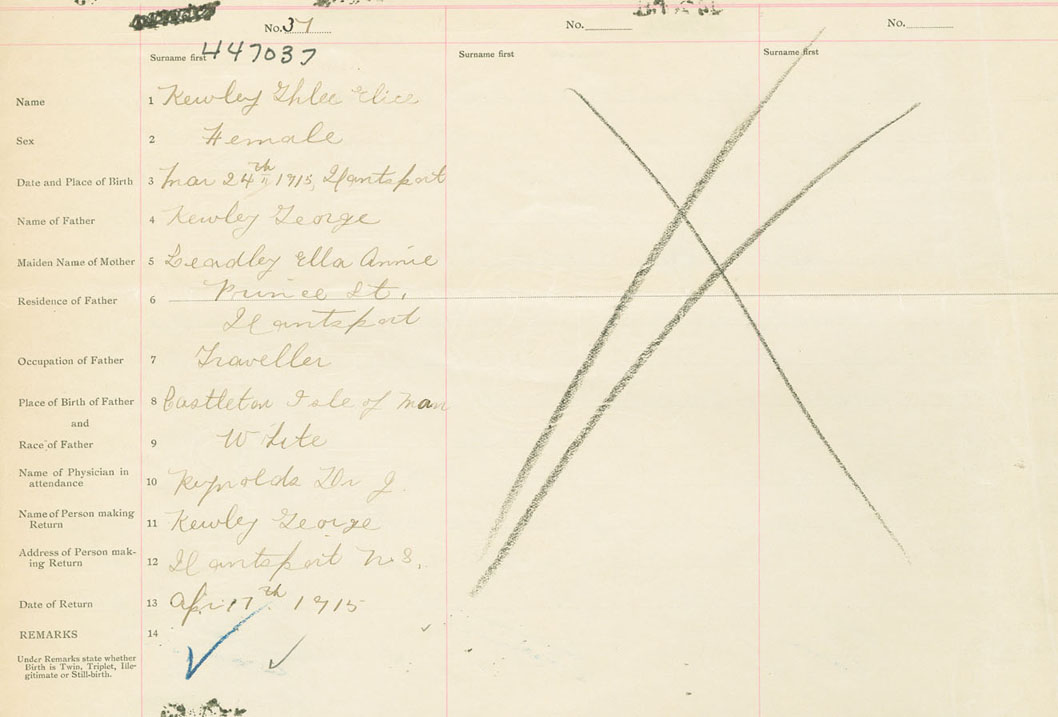 No. 37
No.
No.
Surname first 447037
Surname first
Surname first
Name 1 Kewley Elice
Sex 2 Female
Date and Place of Birth 3 Mar 24th 1915, Hantsport
Name of Father 4 Kewley George
Maiden Name of Mother 5 Leadley Ella Annie
Residence of Father 6 Prince St,
Hantsport
Occupation of Father 7 Traveller
Place of Birth of Father 8 Castleton Isle of Man
and
Race of Father 9 White
Name of Physician in
attendance 10 Reynolds Dr J.
Name of Person making
Return 11 Kewley George
Address of Person mak-
ing Return 12 Hantsport N.S.
Date of Return 13 Apr 17th 1915
REMARKS 14
Under Remarks state whether
Birth is Twin, Triplet, Ille-
gitimate or Still-birth.